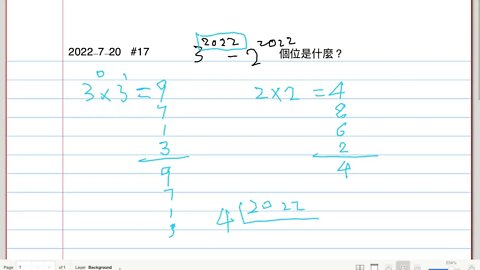 2022 7 20 #17 3^2022 - 2^2022 個位是什麼？
0 1
3 x 3 = 9 2 x 2 = 4
7 8
1 6
3 2
9 4
7
1 4 2022
3
Page: 1 of 1 Layer: Background